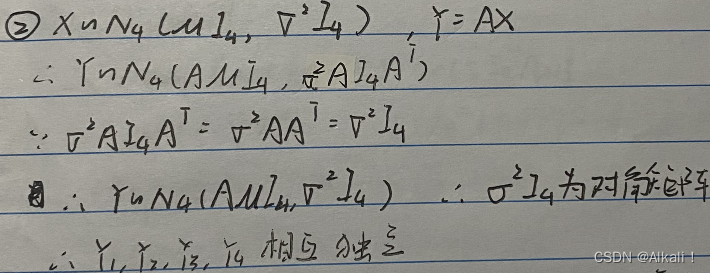 ② X~N₄(μI₄, σ²I₄), Y=AX
∴ Y~N₄(AμI₄, σ²AI₄Aᵀ)
∵ σ²AI₄Aᵀ = σ²AAᵀ = σ²I₄
∴ Y~N₄(AμI₄, σ²I₄) ∴ σ²I₄为对角矩阵
∴ Y₁, Y₂, Y₃, Y₄ 相互独立
CSDN @Alkali！